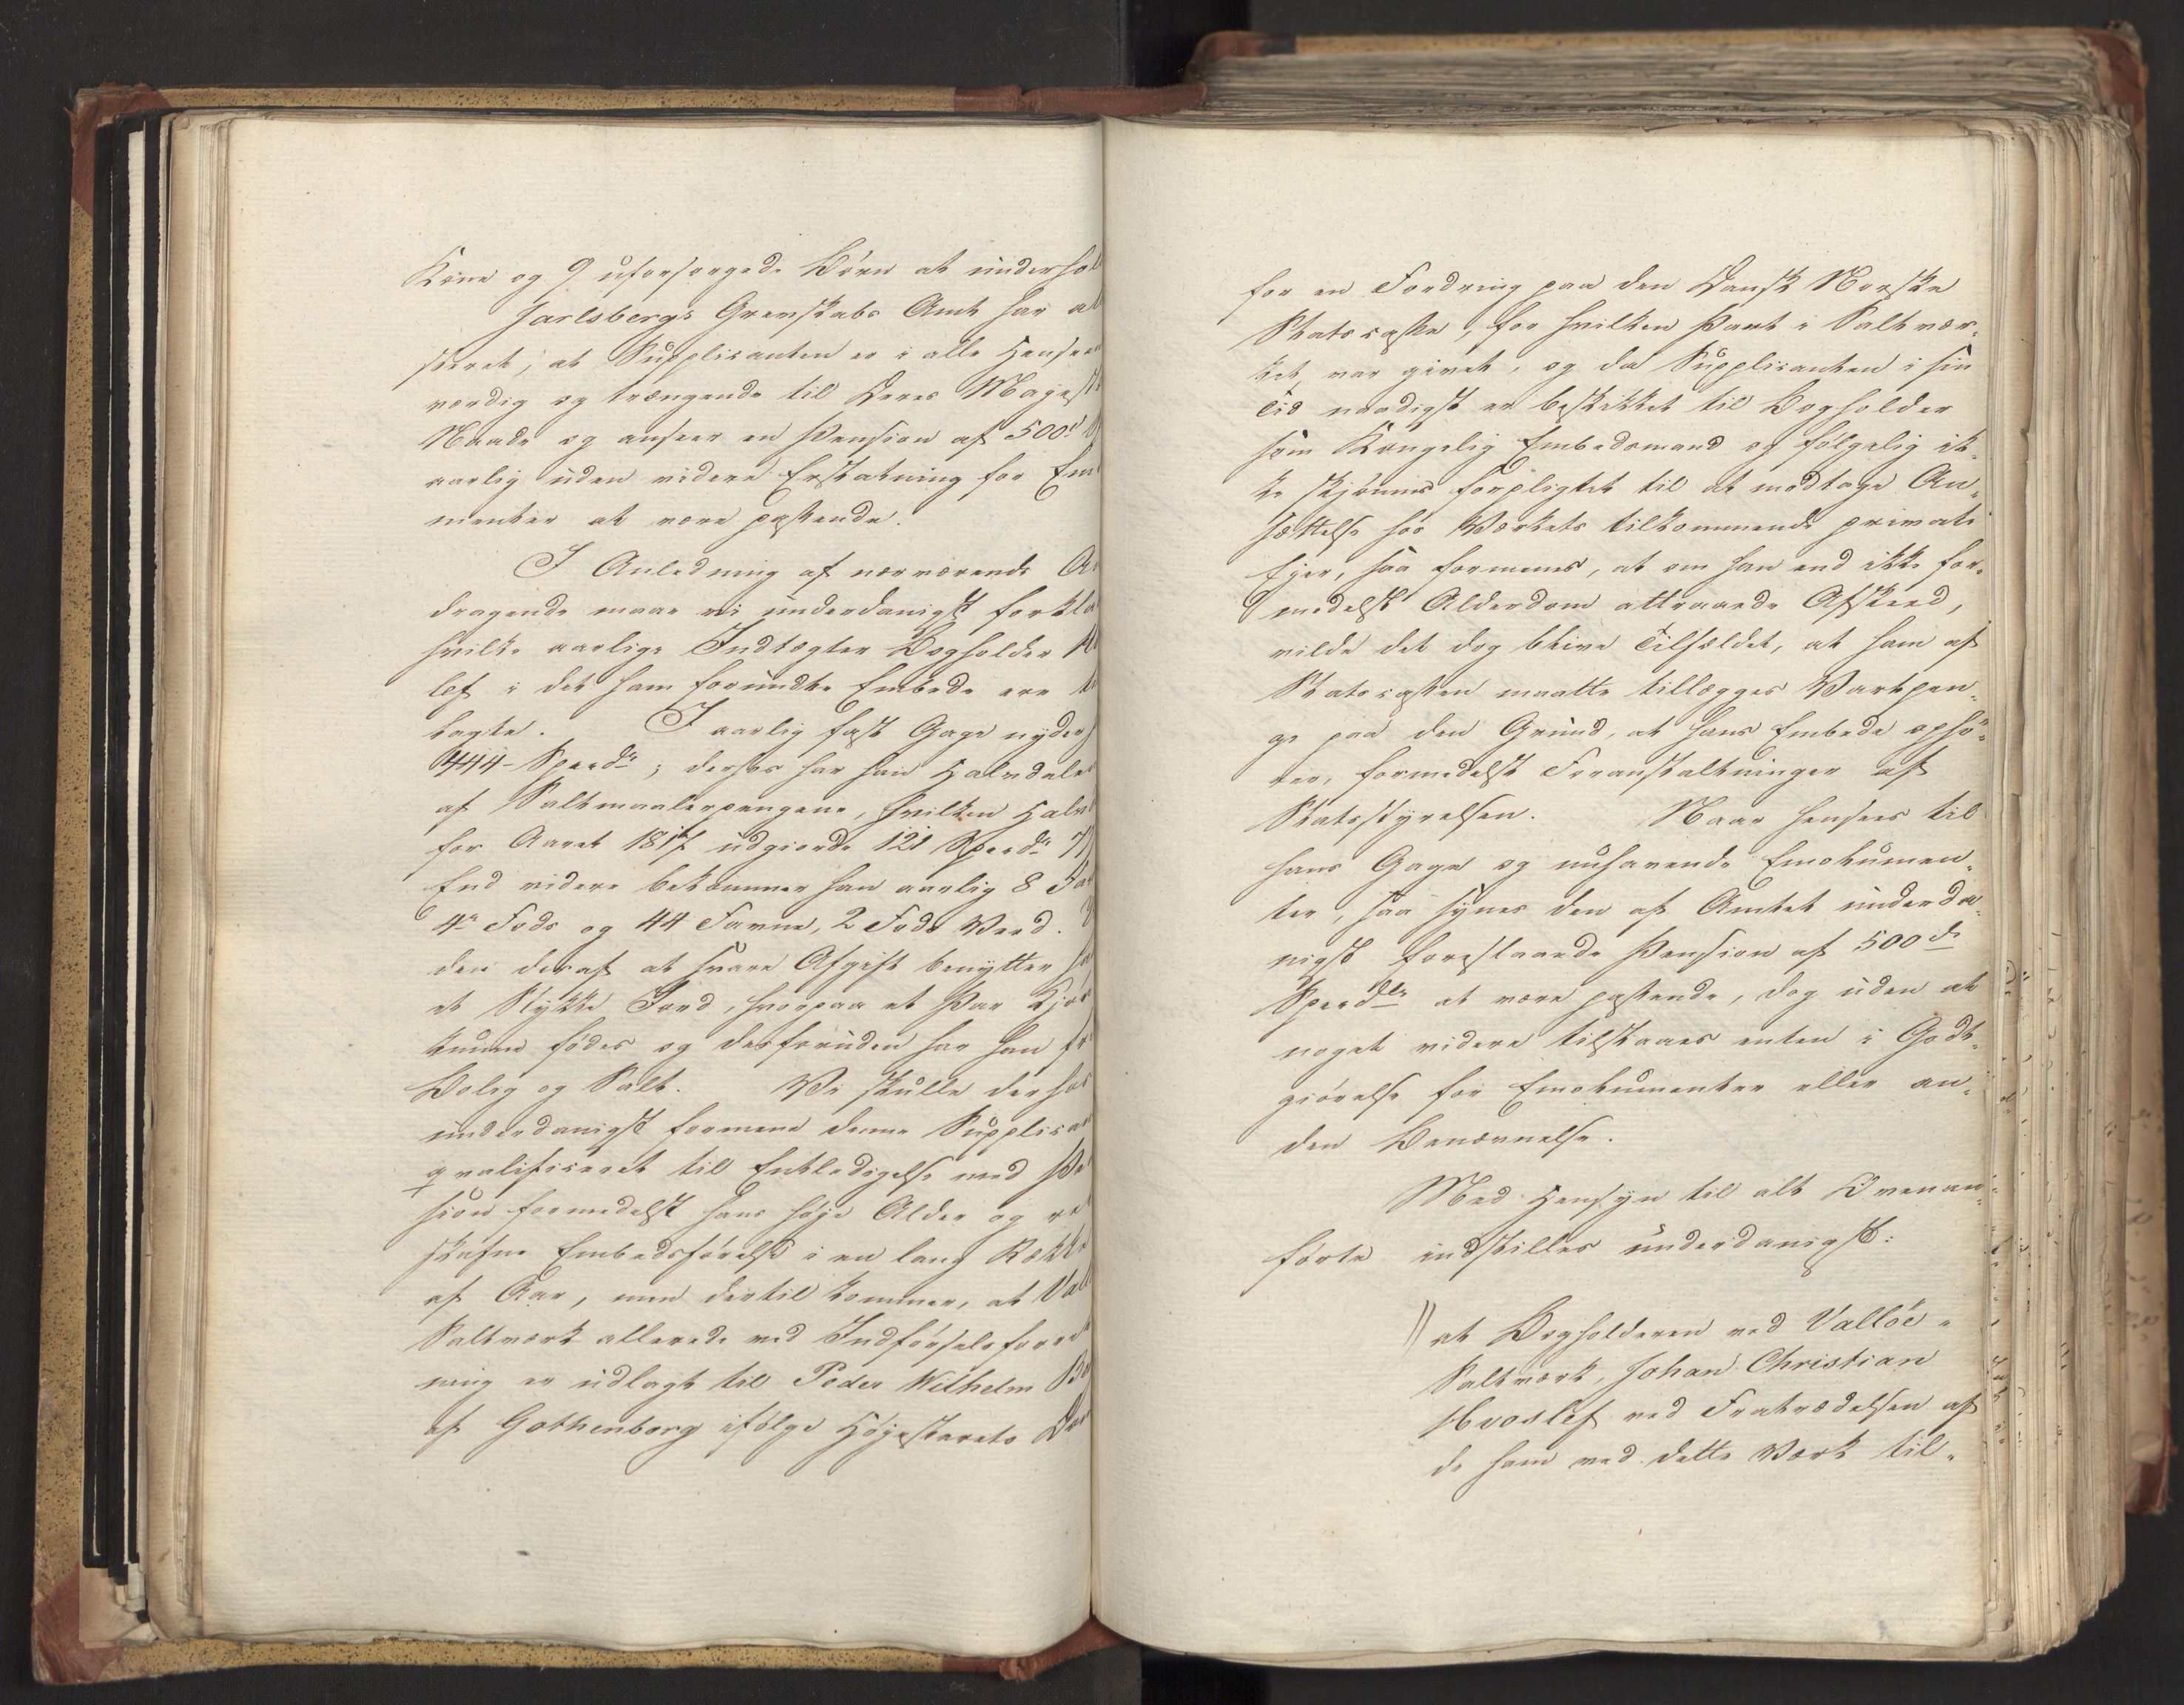 Kone og 9 uforsørgede Børn at underhol
Jarlsbergs Grevskabs Amt har at
steret, at Supplicanten er i alle Hensee
værdig og trængende til Deres Majest
Naade og anseer en Pension af 500
aarlig uden videre Erstatning for Em
menter at være passende.
I Anledning af nærværende
dragende maae vi underdanigst forkla
hvilke aarlige Indtægter Bogholder
lef i det ham forundte Embede ere
lagte. I aarlig fast Gage nyder
444 Specdr; derhos har han Halvdele
af Saltmaalerpengene, hvilken Halv
for Aaret 1817 udgiorde 121 Specdr
End videre bekommer han aarlig 8
4r Fods og 44 Favne, 2 Fods Veed.
den deraf at svare Afgift benytter
et Stykke Jord, hvorpaa et Par Kjø
kunne fødes og desforuden har han
Bolig og Salt. Vi skulle derhos
underdanigst formene denne Supplican
qvalificeret til Entledigelse med Pe
sion formedelst hans høje Alder og
skafne Embedsførelse i en lang Række
af Aar, men dertil kommer, at Val
Saltværk allerede ved Indførselsforret
ning er udlagt til Peder Wilhelm
af Gothenborg ifølge Højesterets
for en Fordring paa den Dansk Norske
Statscasse, for hvilken Pant i Saltvær-
ket var givet, og da Supplicanten i sin
Tid naadigst er beskikket til Bogholder
som Kongelig Embedsmand og følgelig ik-
ke skjønnes forpligtet til at modtage An-
sættelse hos Værkets tilkommende private
Ejer, saa formenes, at om han end ikke for-
medelst Alderdom attraaede Afskeed,
vilde det dog blive Tilfældet, at ham af
Statscassen maatte tillægges Vartpen-
ge paa den Grund, at hans Embede ophø-
rer, formedelst Foranstaltninger af
Statsstyrelsen. Naar henses til
hans Gage og nuhavende Emolumen-
ter, saa synes den af Amtet underda-
nigst foreslaaede Pension af 500de
Specdlr at være passende, dog uden at
noget videre tilstaaes enten i Godt-
giørelse for Emolumenter eller an-
den Benævnelse.
Med Hensyn til alt Ovenan-
førte indstilles underdanigst:
at Bogholderen ved Valløe-
Saltværk, Johan Christian
Hvoslef ved Fratrædelsen af
de ham ved dette Værk til-